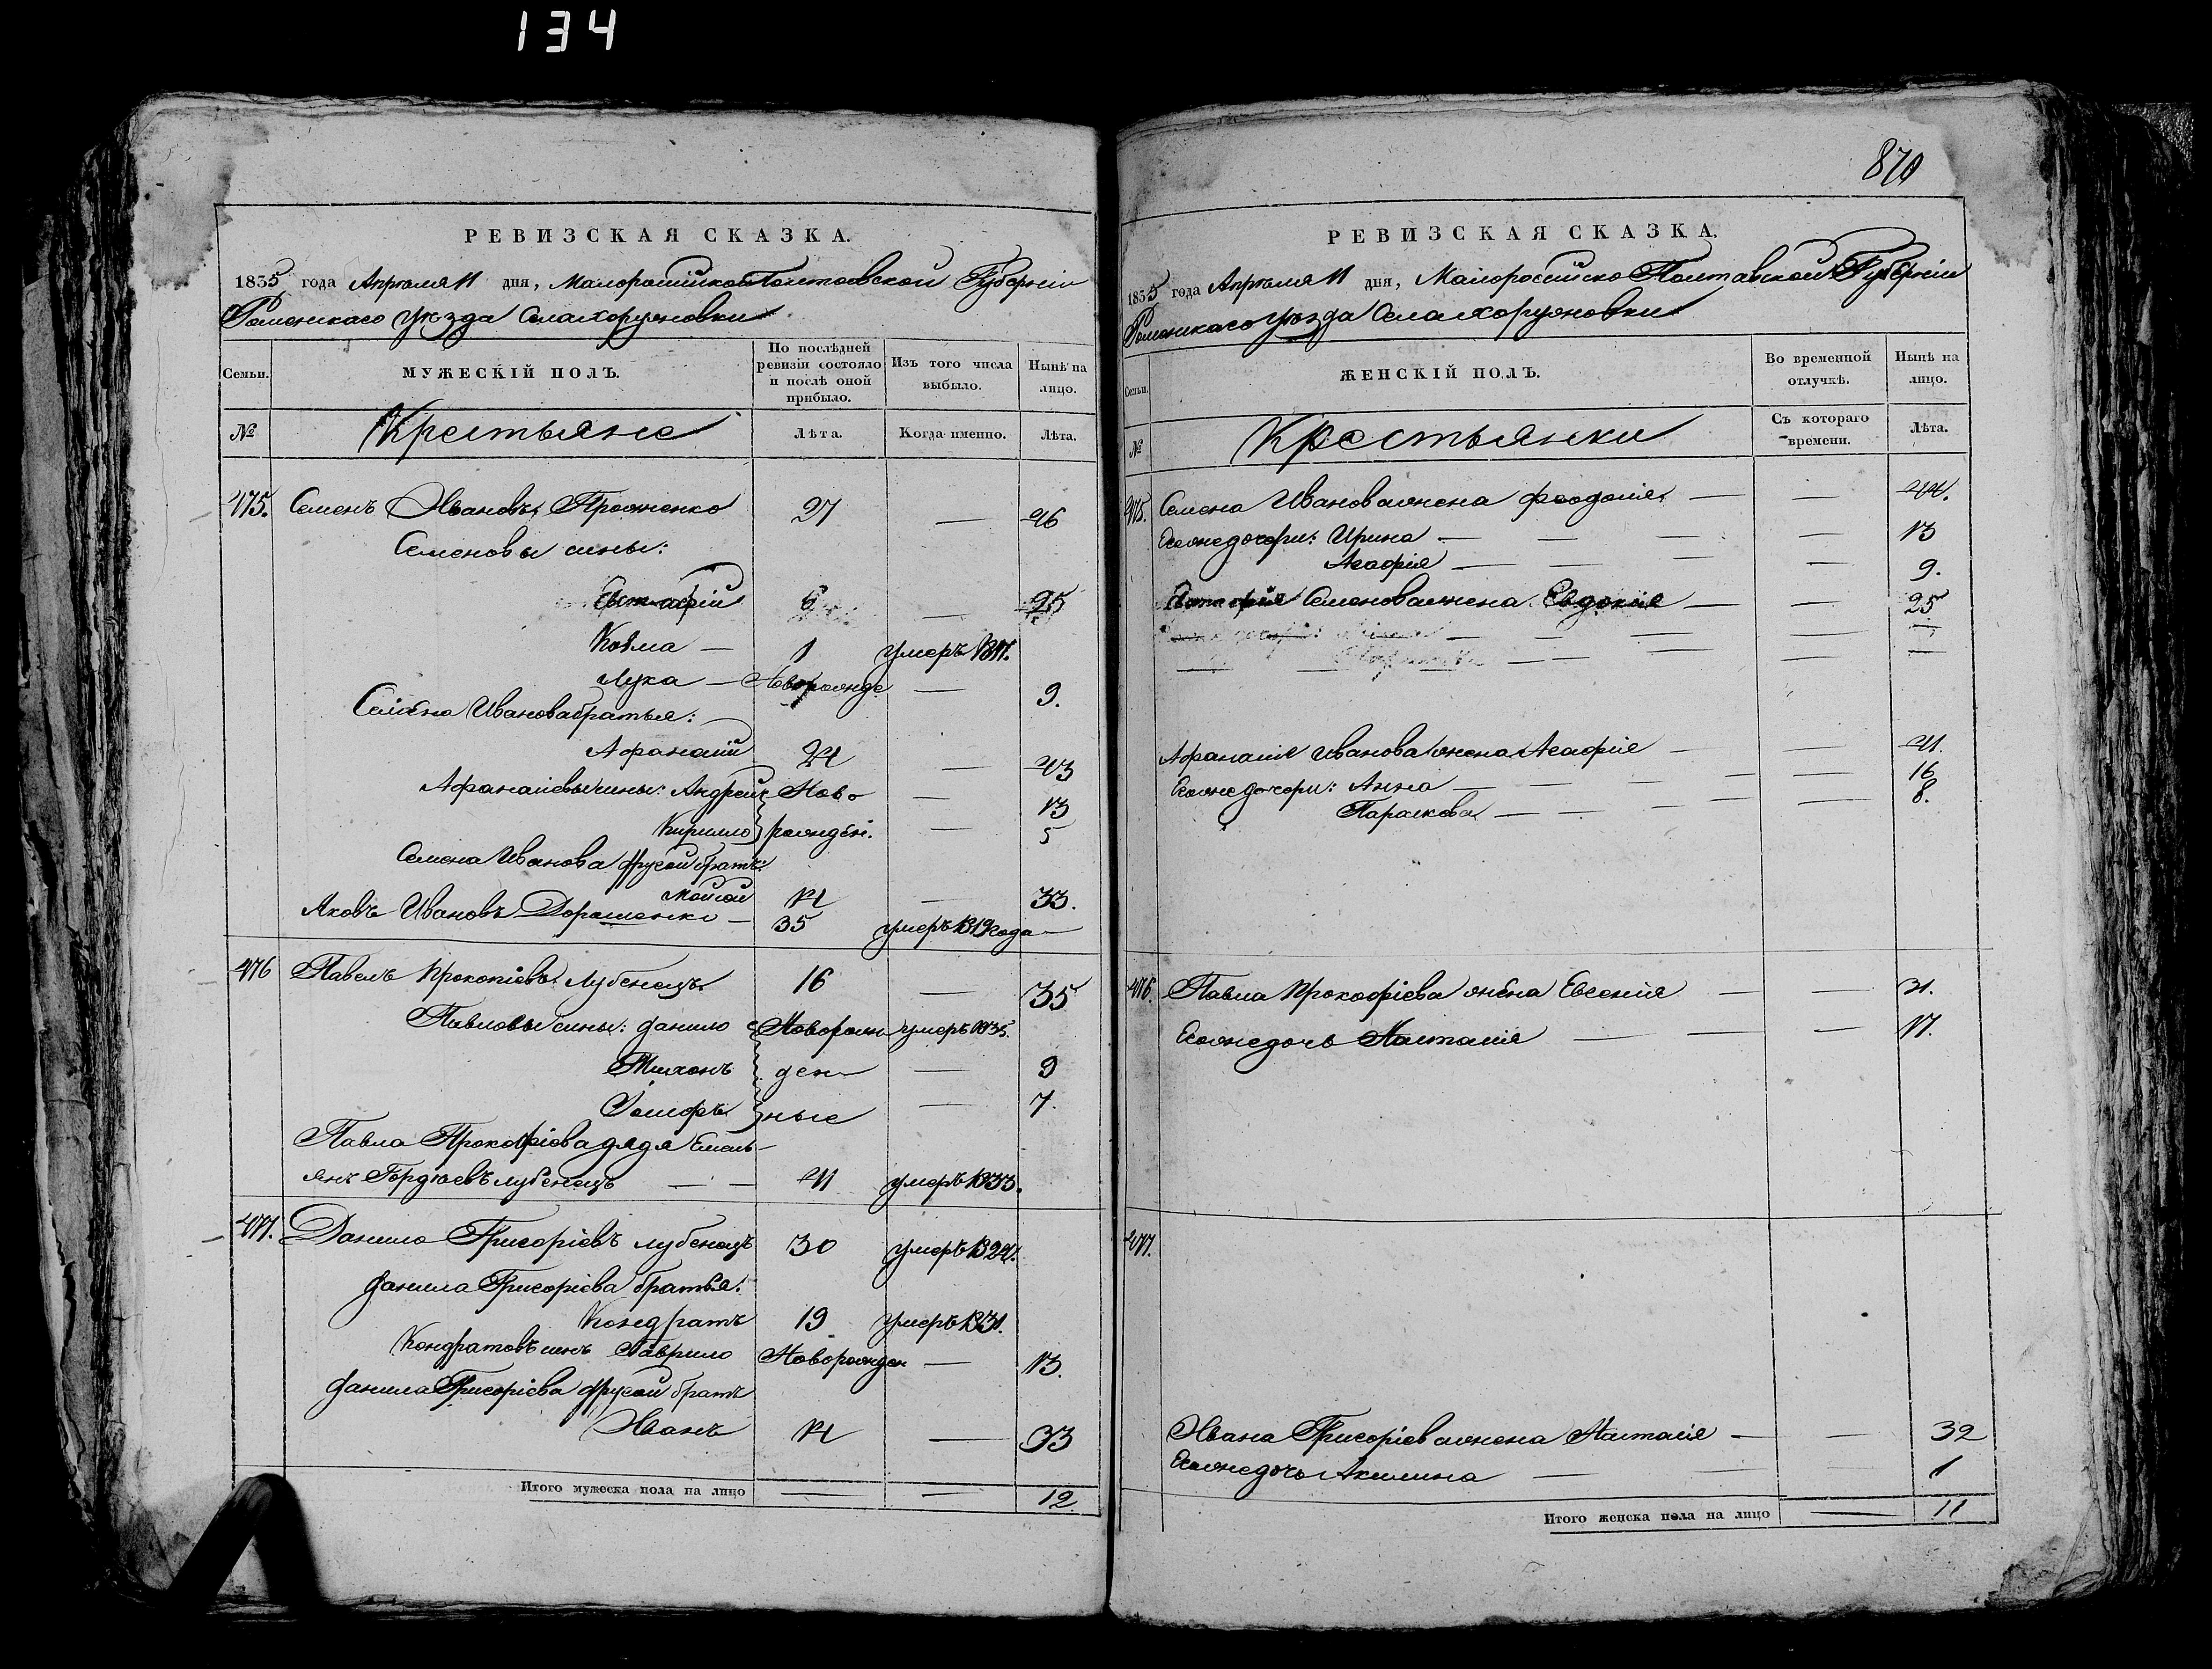 134
РЕВИЗСКАЯ СКАЗКА.
1835 года Апреля 11 дня, Малоросийско Полтавской Губернiи
Роменскаго уезда Села Хоружовки
Семьи. МУЖЕСКIЙ ПОЛЪ. По послѣдней ревизiи состояло и послѣ оной прибыло. Изъ того числа выбыло. Нынѣ на лицо.
№ Крестьяне Лѣта. Когда именно. Лѣта.
475. Семенъ Ивановъ 27 — 46
Семеновы сины:
Евстафiй 6 — 25
Козма — 1 умеръ
Лука — Новорожде — 9.
Семена Иванова братья:
Афанасiй 24 — 43
Афанасiевы сины: Андрей Ново — 13
Кирило рожден. — 5
Семена Иванова другой братъ:
Мойсей 14 — 33.
Яковъ Ивановъ Дорошенко — 35 умеръ 1819 года —
476 Павелъ Прокопiевъ Лубенецъ 16 — 35
Павловы сины: Данило Новорож умеръ 1835.
Тихонъ ден — 9
ные — 7.
Павла Прокофiева дядя Емель-
янъ Гордѣевъ Лубенецъ — — 41 умеръ 1833.
477. Данило Григорiевъ Лубенецъ 30 умеръ 1824.
Данила Григорiева братья:
Кондратъ 19 умеръ 1831.
Кондратовъ синъ Гаврило Новорожден — 13.
Данила Григорiева другой братъ
Иванъ 14 — 33
Итого мужеска пола на лицо — — 12.
870
РЕВИЗСКАЯ СКАЗКА.
1835 года Апреля 11 дня, Малоросийско Полтавской Губернiи
Роменскаго уезда Села Хоружовки
Семьи. ЖЕНСКIЙ ПОЛЪ. Во временной отлучкѣ. Нынѣ на лицо.
№ Крестьянки Съ котораго времени. Лѣта.
475. Семена Иванова жена Феодосiя — — 44.
Его же дочери: Ирина — — — — 13
Агафiя — — — — 9.
Евстафiя Семенова жена Евдокiя — — 25
Афанасiя Иванова жена Агафiя — — 41.
Его же дочери: Анна — — — — 16
Параскева — — — — 8.
476. Павла Прокофiева жена Евгенiя — — 31.
Его же дочь Настасiя — — — 17.
477.
Ивана Григорiева жена Настасiя — — 32
Его же дочь Акилина — — — 1
Итого женска пола на лицо — 11